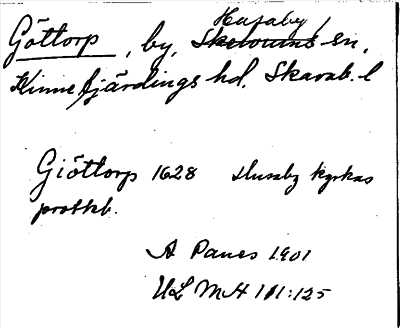 Husaby
Göttorp, by, Skelvums sn,
Kinnefjärdings hd, Skarab. l
Giöttorp 1628 Husaby kyrkas
protkb.
A Panes 1901
ULMA 111:125